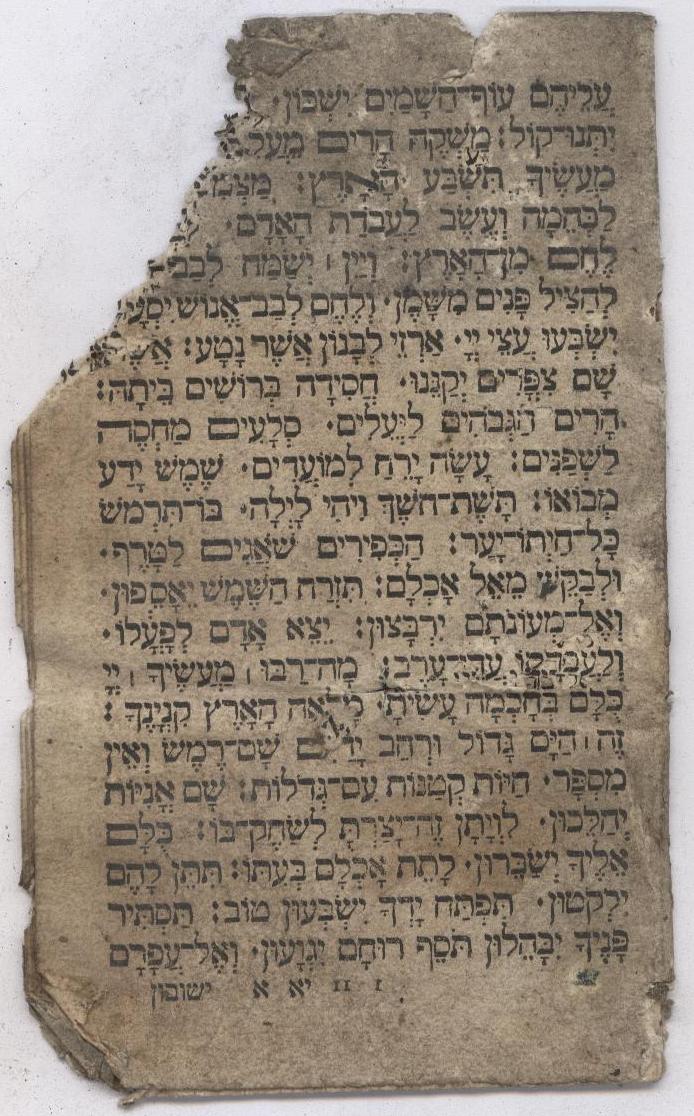 עֲלֵיהֶם עוֹף־הַשָּׁמַיִם יִשְׁכּוֹן·
יִתְּנוּ־קוֹל: מַשְׁקֶה הָרִים
מַעֲשֶׂיךָ תִּשְׂבַּע הָאָרֶץ:
לַבְּהֵמָה וְעֵשֶׂב לַעֲבֹדַת הָאָדָם·
לֶחֶם מִן־הָאָרֶץ: וְיַיִן ׀ יְשַׂמַּח
לְהַצְהִיל פָּנִים מִשָּׁמֶן· וְלֶחֶם לְבַב־אֱנוֹשׁ
יִשְׂבְּעוּ עֲצֵי יְיָ· אַרְזֵי לְבָנוֹן אֲשֶׁר נָטָע:
שָׁם צִפֳּרִים יְקַנֵּנוּ· חֲסִידָה בְּרוֹשִׁים בֵּיתָהּ:
הָרִים הַגְּבֹהִים לַיְּעֵלִים· סְלָעִים מַחְסֶה
לַשְׁפַנִּים: עָשָׂה יָרֵחַ לְמוֹעֲדִים· שֶׁמֶשׁ יָדַע
מְבוֹאוֹ: תָּשֶׁת־חֹשֶׁךְ וִיהִי לָיְלָה· בּוֹ־תִרְמֹשׂ
כָּל־חַיְתוֹ־יָעַר: הַכְּפִירִים שֹׁאֲגִים לַטָּרֶף·
וּלְבַקֵּשׁ מֵאֵל אָכְלָם: תִּזְרַח הַשֶּׁמֶשׁ יֵאָסֵפוּן·
וְאֶל־מְעוֹנֹתָם יִרְבָּצוּן: יֵצֵא אָדָם לְפָעֳלוֹ·
וְלַעֲבֹדָתוֹ עֲדֵי־עָרֶב: מָה־רַבּוּ ׀ מַעֲשֶׂיךָ ׀ יְיָ
כֻּלָּם בְּחָכְמָה עָשִׂיתָ· מָלְאָה הָאָרֶץ קִנְיָנֶךָ:
זֶה ׀ הַיָּם גָּדוֹל וּרְחַב יָדָיִם שָׁם־רֶמֶשׂ וְאֵין
מִסְפָּר· חַיּוֹת קְטַנּוֹת עִם־גְּדֹלוֹת: שָׁם אֳנִיּוֹת
יְהַלֵּכוּן· לִוְיָתָן זֶה־יָצַרְתָּ לְשַׂחֶק־בּוֹ: כֻּלָּם
אֵלֶיךָ יְשַׂבֵּרוּן· לָתֵת אָכְלָם בְּעִתּוֹ: תִּתֵּן לָהֶם
יִלְקֹטוּן· תִּפְתַּח יָדְךָ יִשְׂבְּעוּן טוֹב: תַּסְתִּיר
פָּנֶיךָ יִבָּהֵלוּן תֹּסֵף רוּחָם יִגְוָעוּן· וְאֶל־עֲפָרָם
1 11 יא א ישובון